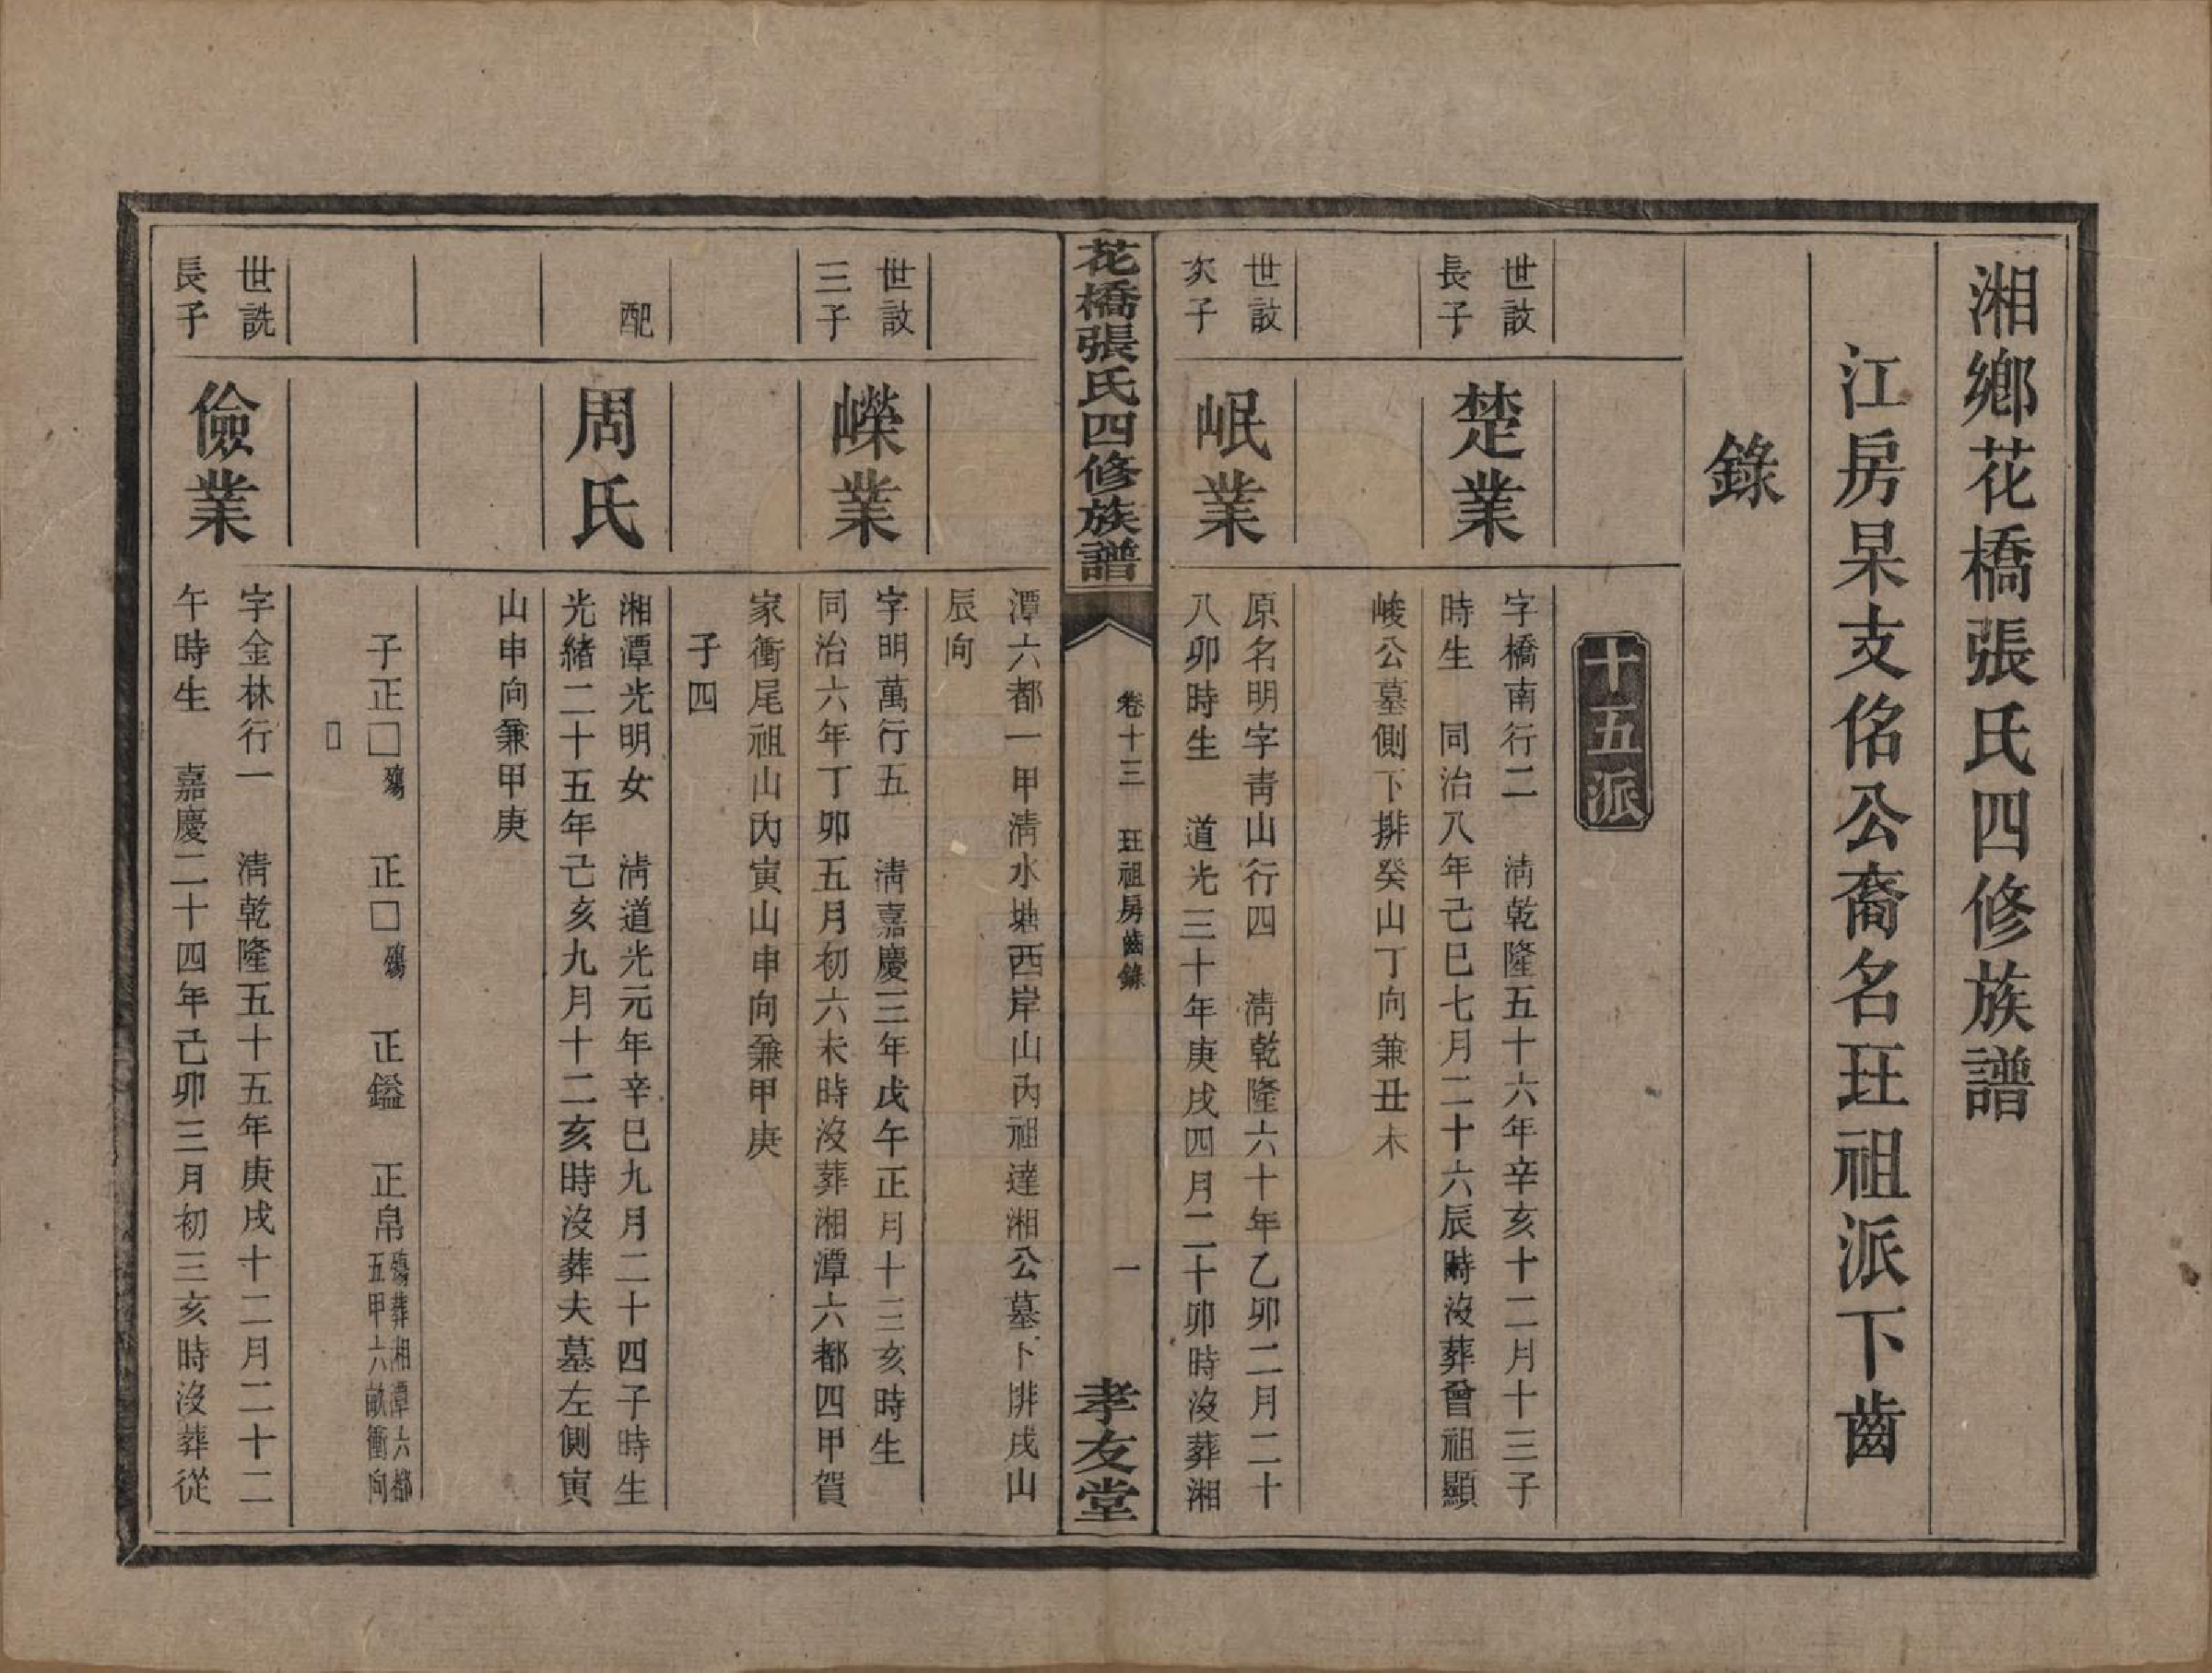 湘鄉花橋張氏四修族譜
江房杲支佲公裔名玨祖派下齒
錄
十五派
世設
長子
楚業
字橋南行二　清乾隆五十六年辛亥十二月十三子
時生　同治八年己巳七月二十六辰時沒葬曾祖顯
峻公墓側下排癸山丁向兼丑未
世設
次子
岷業
原名明字青山行四　清乾隆六十年乙卯二月二十
八卯時生　道光三十年庚戌四月二十卯時沒葬湘
花橋張氏四修族譜
卷十三　玨祖房齒錄
一
孝友堂
潭六都一甲清水塘西岸山內祖達湘公墓下排戌山
辰向
世設
三子
嶸業
字明萬行五　清嘉慶三年戊午正月十三亥時生
同治六年丁卯五月初六未時沒葬湘潭六都四甲賀
家衝尾祖山內寅山申向兼甲庚
子四
配
周氏
湘潭光明女　清道光元年辛巳九月二十四子時生
光緒二十五年己亥九月十二亥時沒葬夫墓左側寅
山申向兼甲庚
子正□殤　正□殤　正鎰　正帛殤葬湘潭六都
五甲六畝衝向
□
世詵
長子
儉業
字金林行一　清乾隆五十五年庚戌十二月二十二
午時生　嘉慶二十四年己卯三月初三亥時沒葬從